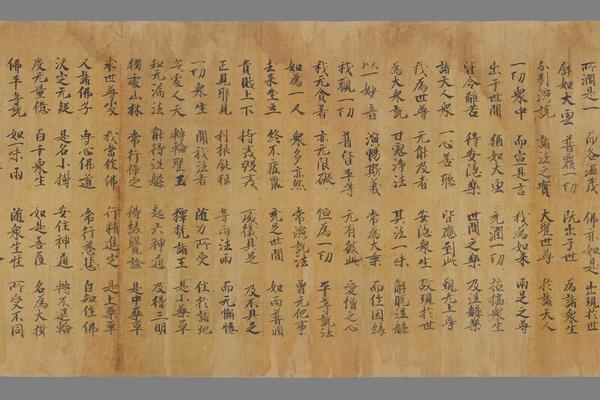 所潤是一 而各滋茂 佛亦如是 出現於世
譬如大雲 普覆一切 既出于世 為諸眾生
分別演說 諸法之實 大聖世尊 於諸天人
一切眾中 而宣是言 我為如來 兩足之尊
出于世間 猶如大雲 充潤一切 枯槁眾生
皆令離苦 得安隱樂 世間之樂 及涅槃樂
諸天人眾 一心善聽 皆應到此 覲无上尊
我為世尊 无能及者 安隱眾生 故現於世
為大眾說 甘露淨法 其法一味 解脫涅槃
以一妙音 演暢斯義 常為大乘 而作因緣
我觀一切 普皆平等 无有彼此 愛憎之心
我无貪著 亦无限礙 恒為一切 平等說法
如為一人 眾多亦然 常演說法 曾无他事
去來坐立 終不疲厭 充足世間 如雨普潤
貴賤上下 持戒毀戒 威儀具足 及不具足
正見邪見 利根鈍根 等雨法雨 而无懈惓
一切眾生 聞我法者 隨力所受 住於諸地
或處人天 轉輪聖王 釋梵諸王 是小藥草
知无漏法 能得涅槃 起六神通 及得三明
獨處山林 常行禪定 得緣覺證 是中藥草
求世尊處 我當作佛 行精進定 是上藥草
又諸佛子 專心佛道 常行慈悲 自知作佛
決定无疑 是名小樹 安住神通 轉不退輪
度无量億 百千眾生 如是菩薩 名為大樹
佛平等說 如一味雨 隨眾生性 所受不同